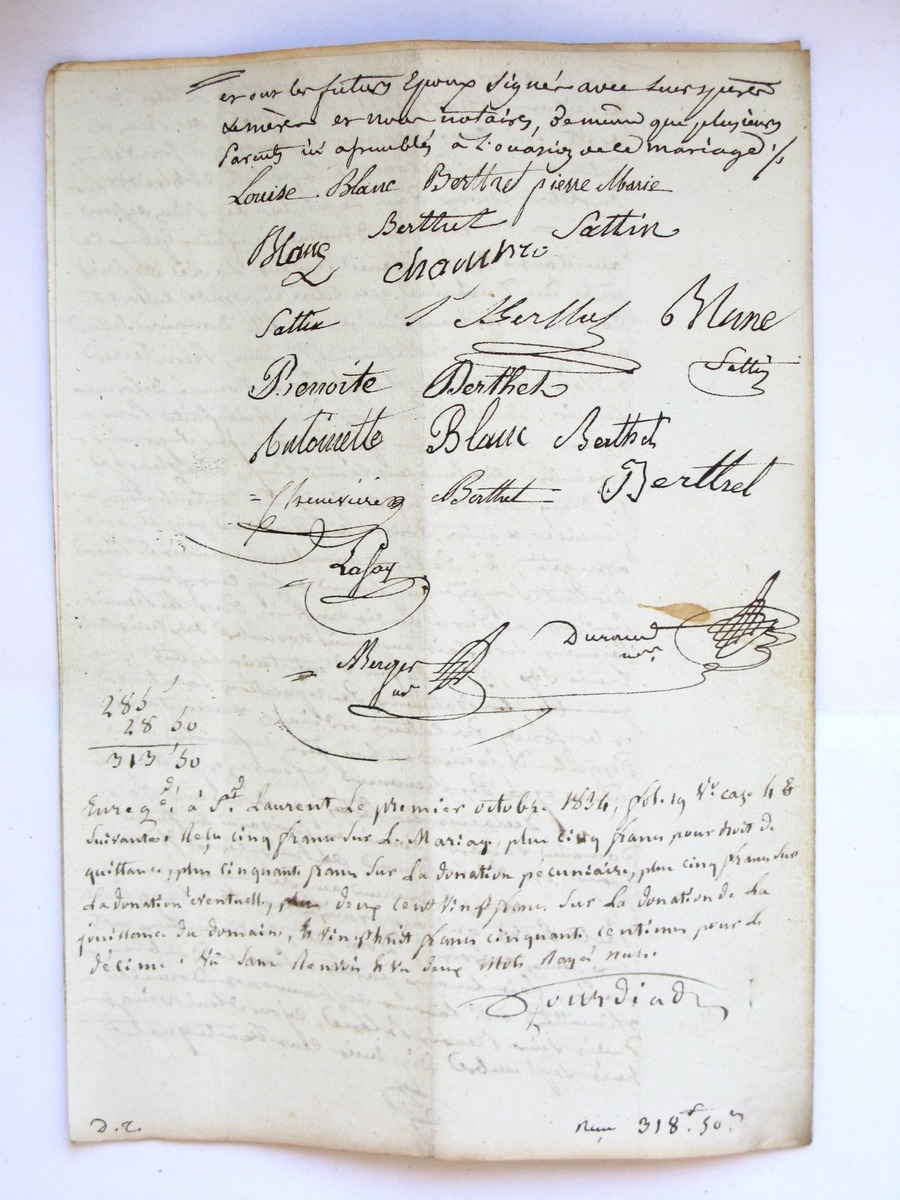 et ont les futurs Epoux signé avec leurs pères
& mères et nous notaires, de même que plusieurs
Parents ici assemblés à l'occasion de ce mariage ./.
Louise Blanc Berthet pierre Marie
Blanc Berthet Sattin
chambre
Sattin Berthet Blanc
Sattin
Benoite Berthet
Antoinette Blanc Berthet
= Berthet = Berthet
= Lafay
Durand nre
= Berger nre
285
28 50
313 50
Enregé. à St. Laurent le premier octobre 1834, fol. 19 Vo. case 4 &
suivantes. Reçu cinq francs sur le Mariage, plus cinq francs pour droit de
quittance, plus cinquante francs sur la donation pécuniaire, plus cinq francs sur
la donation éventuelle, plus deux cent vingt francs sur la donation de la
jouissance du domaine, & vingt huit francs cinquante centimes pour le
décime. Vu sans Renvois & vu deux Mots Rayés nuls.
D. 2.
318f. 50c